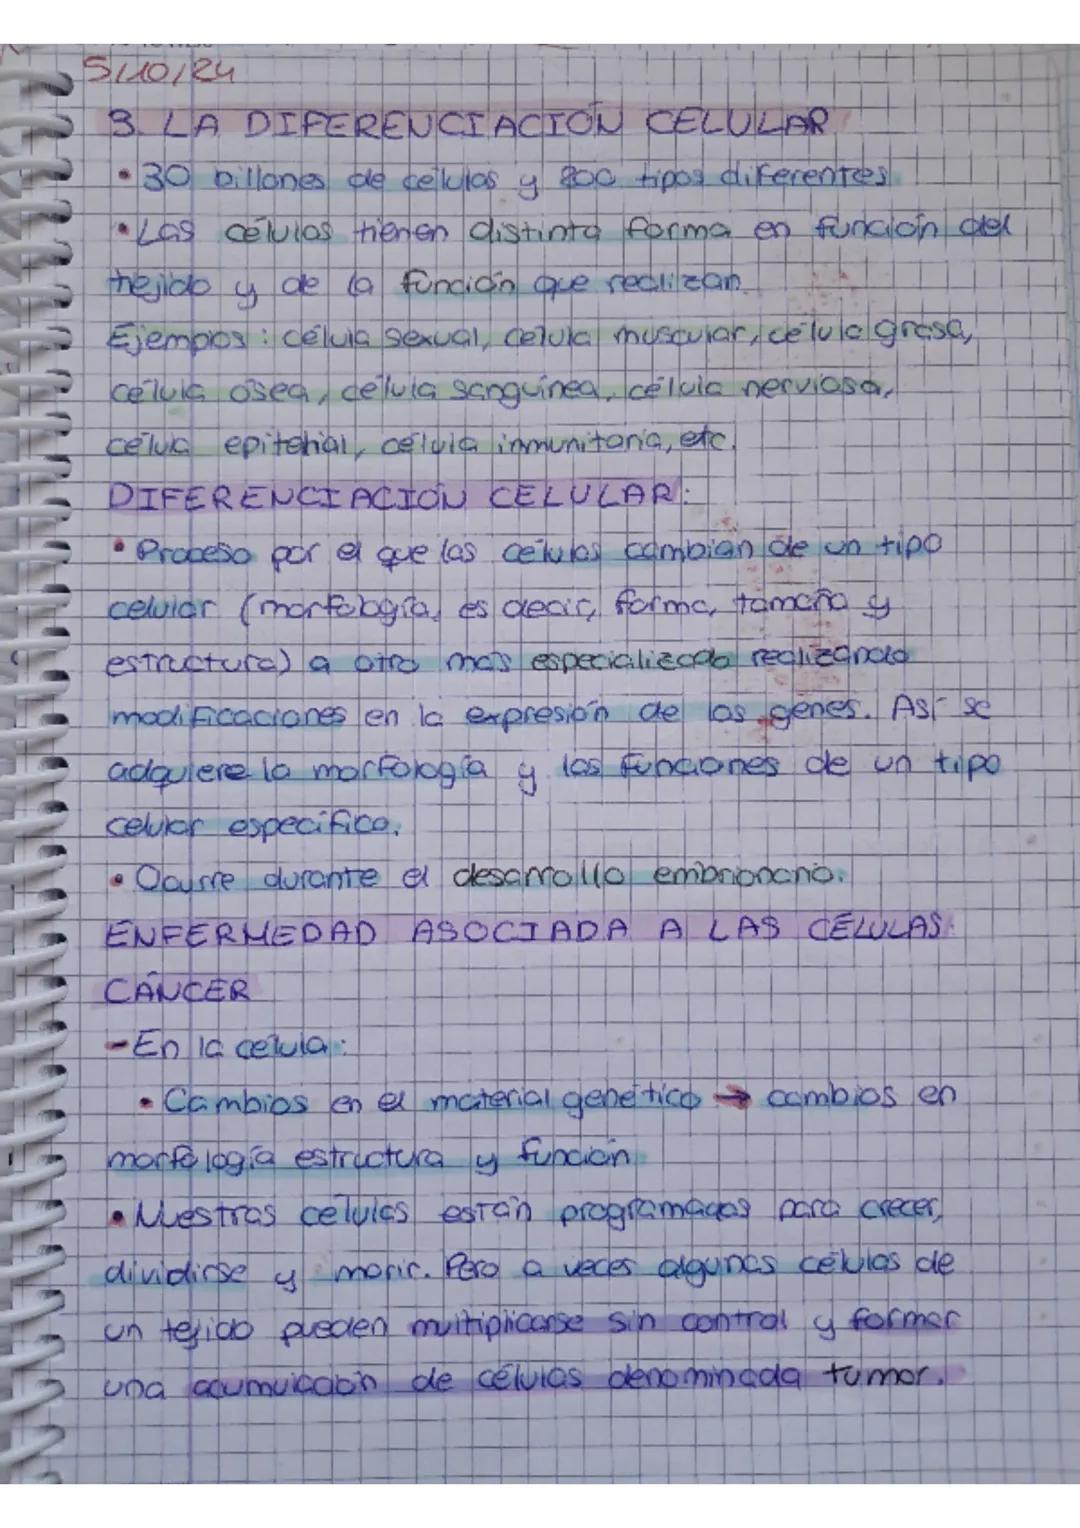 5/10/24
3. LA DIFERENCIACIÓN CELULAR
• 30 billones de células y 200 tipos diferentes
• Las células tienen distinta forma en función del
thejido y de la función que realizan.
Ejempos: célula sexual, célula muscular, célula grasa,
célula ósea, célula sanguínea, célula nerviosa,
célua epitehial, célula inmunitaria, etc.
DIFERENCIACIÓN CELULAR:
• Proceso por el que las células cambian de un tipo
celular (morfología, es decir, forma, tamaño y
estructura) a otro más especializado realizando
modificaciones en la expresión de los genes. Así se
adquiere la morfología y las funciones de un tipo
celular específico.
• Ocurre durante el desarrollo embrionario.
ENFERMEDAD ASOCIADA A LAS CÉLULAS:
CÁNCER
- En la célula:
• Cambios en el material genético → cambios en
morfología estructura y función
• Nuestras células están programadas para crecer,
dividirse y morir. Pero a veces algunas células de
un tejido pueden multiplicarse sin control y formar
una acumulación de células denominada tumor.